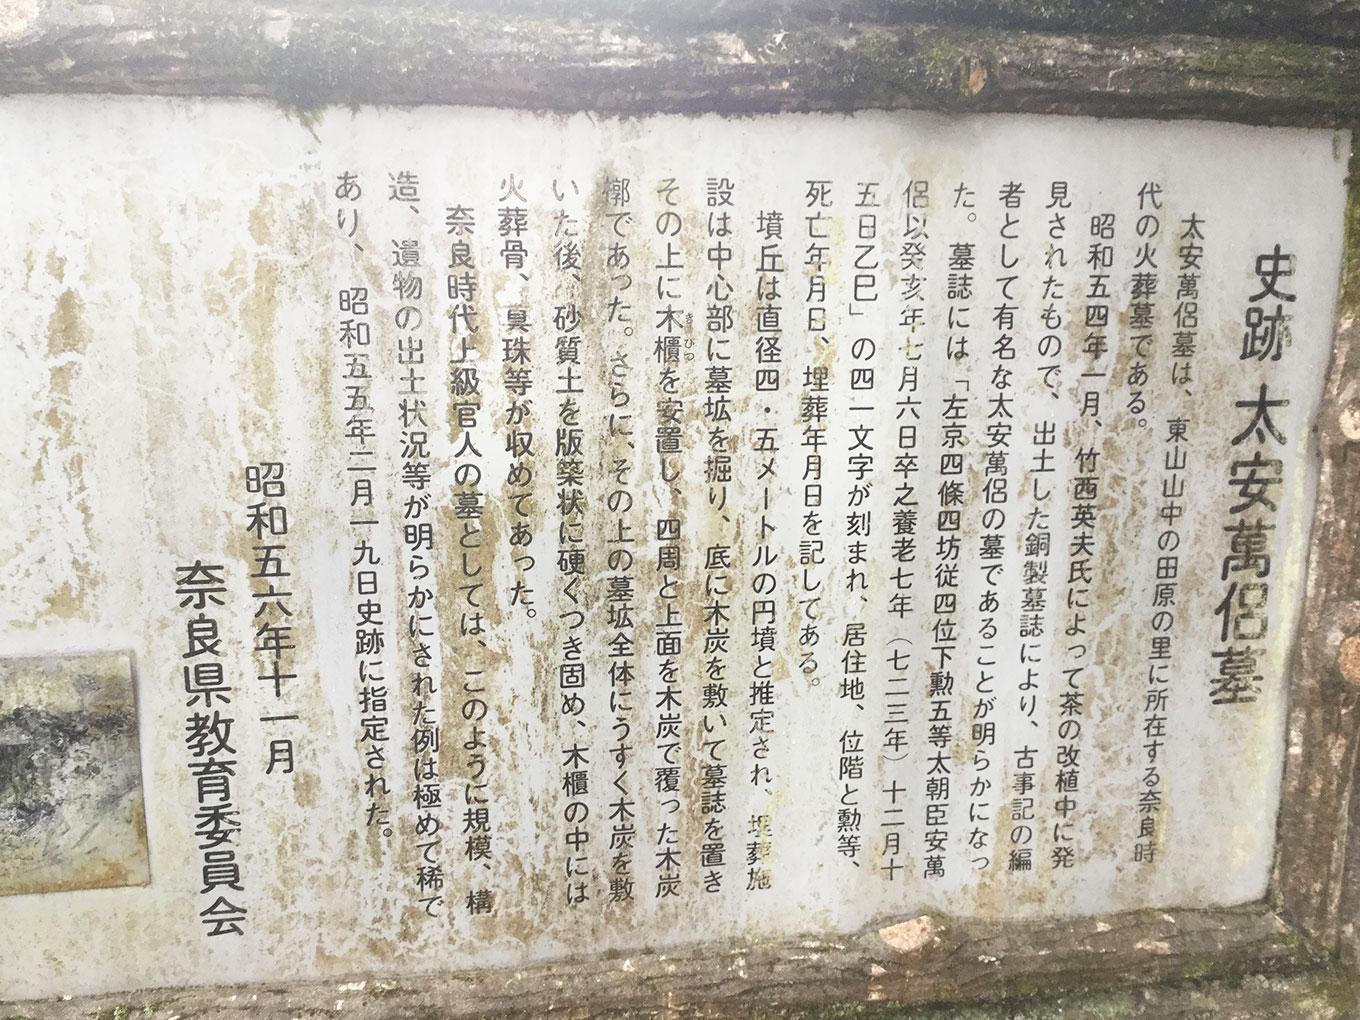 史跡 太安萬侶墓
太安萬侶墓は、東山山中の田原の里に所在する奈良時
代の火葬墓である。
昭和五四年一月、竹西英夫氏によって茶の改植中に発
見されたもので、出土した銅製墓誌により、古事記の編
者として有名な太安萬侶の墓であることが明らかになっ
た。墓誌には「左京四條四坊従四位下勲五等太朝臣安萬
侶以癸亥年七月六日卒之養老七年（七二三年）十二月十
五日乙巳」の四一文字が刻まれ、居住地、位階と勲等、
死亡年月日、埋葬年月日を記してある。
墳丘は直径四・五メートルの円墳と推定され、埋葬施
設は中心部に墓拡を掘り、底に木炭を敷いて墓誌を置き
その上に木櫃きひつを安置し、四周と上面を木炭で覆った木炭
槨であった。さらに、その上の墓拡全体にうすく木炭を敷
いた後、砂質土を版築状に硬くつき固め、木櫃の中には
火葬骨、真珠等が収めてあった。
奈良時代上級官人の墓としては、このように規模、構
造、遺物の出土状況等が明らかにされた例は極めて稀で
あり、昭和五五年二月一九日史跡に指定された。
昭和五六年十一月
奈良県教育委員会